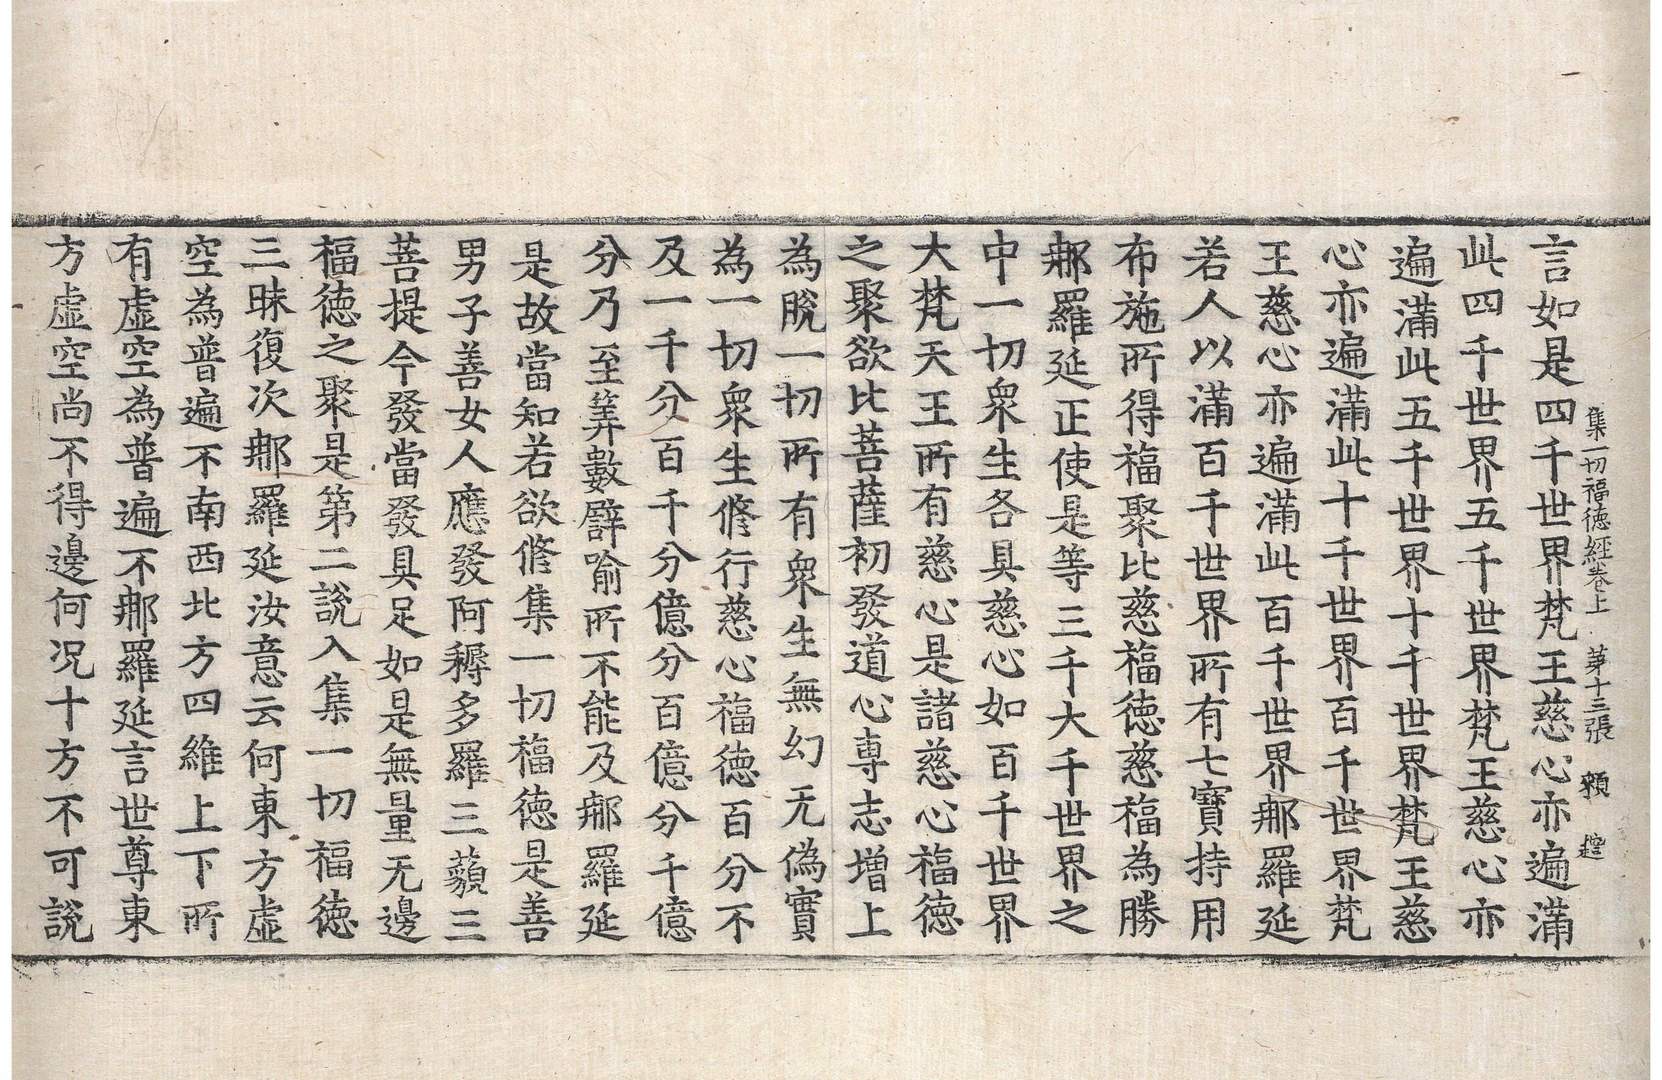 集一切福德經卷上　第十三張　賴
言如是四千世界梵王慈心亦遍滿
此四千世界五千世界梵王慈心亦
遍滿此五千世界十千世界梵王慈
心亦遍滿此十千世界百千世界梵
王慈心亦遍滿此百千世界那羅延
若人以滿百千世界所有七寶持用
布施所得福聚比慈福德慈福為勝
那羅延正使是等三千大千世界之
中一切衆生各具慈心如百千世界
大梵天王所有慈心是諸慈心福德
之聚欲比菩薩初發道心專志增上
為脫一切所有衆生無幻无偽實
為一切衆生修行慈心福德百分不
及一千分百千分億分百億分千億
分乃至筭數譬喻所不能及那羅延
是故當知若欲修集一切福德是善
男子善女人應發阿耨多羅三藐三
菩提今發當發具足如是無量无邊
福德之聚是第二說入集一切福德
三昧復次那羅延汝意云何東方虛
空為普遍不南西北方四維上下所
有虛空為普遍不那羅延言世尊東
方虛空尚不得邊何況十方不可說